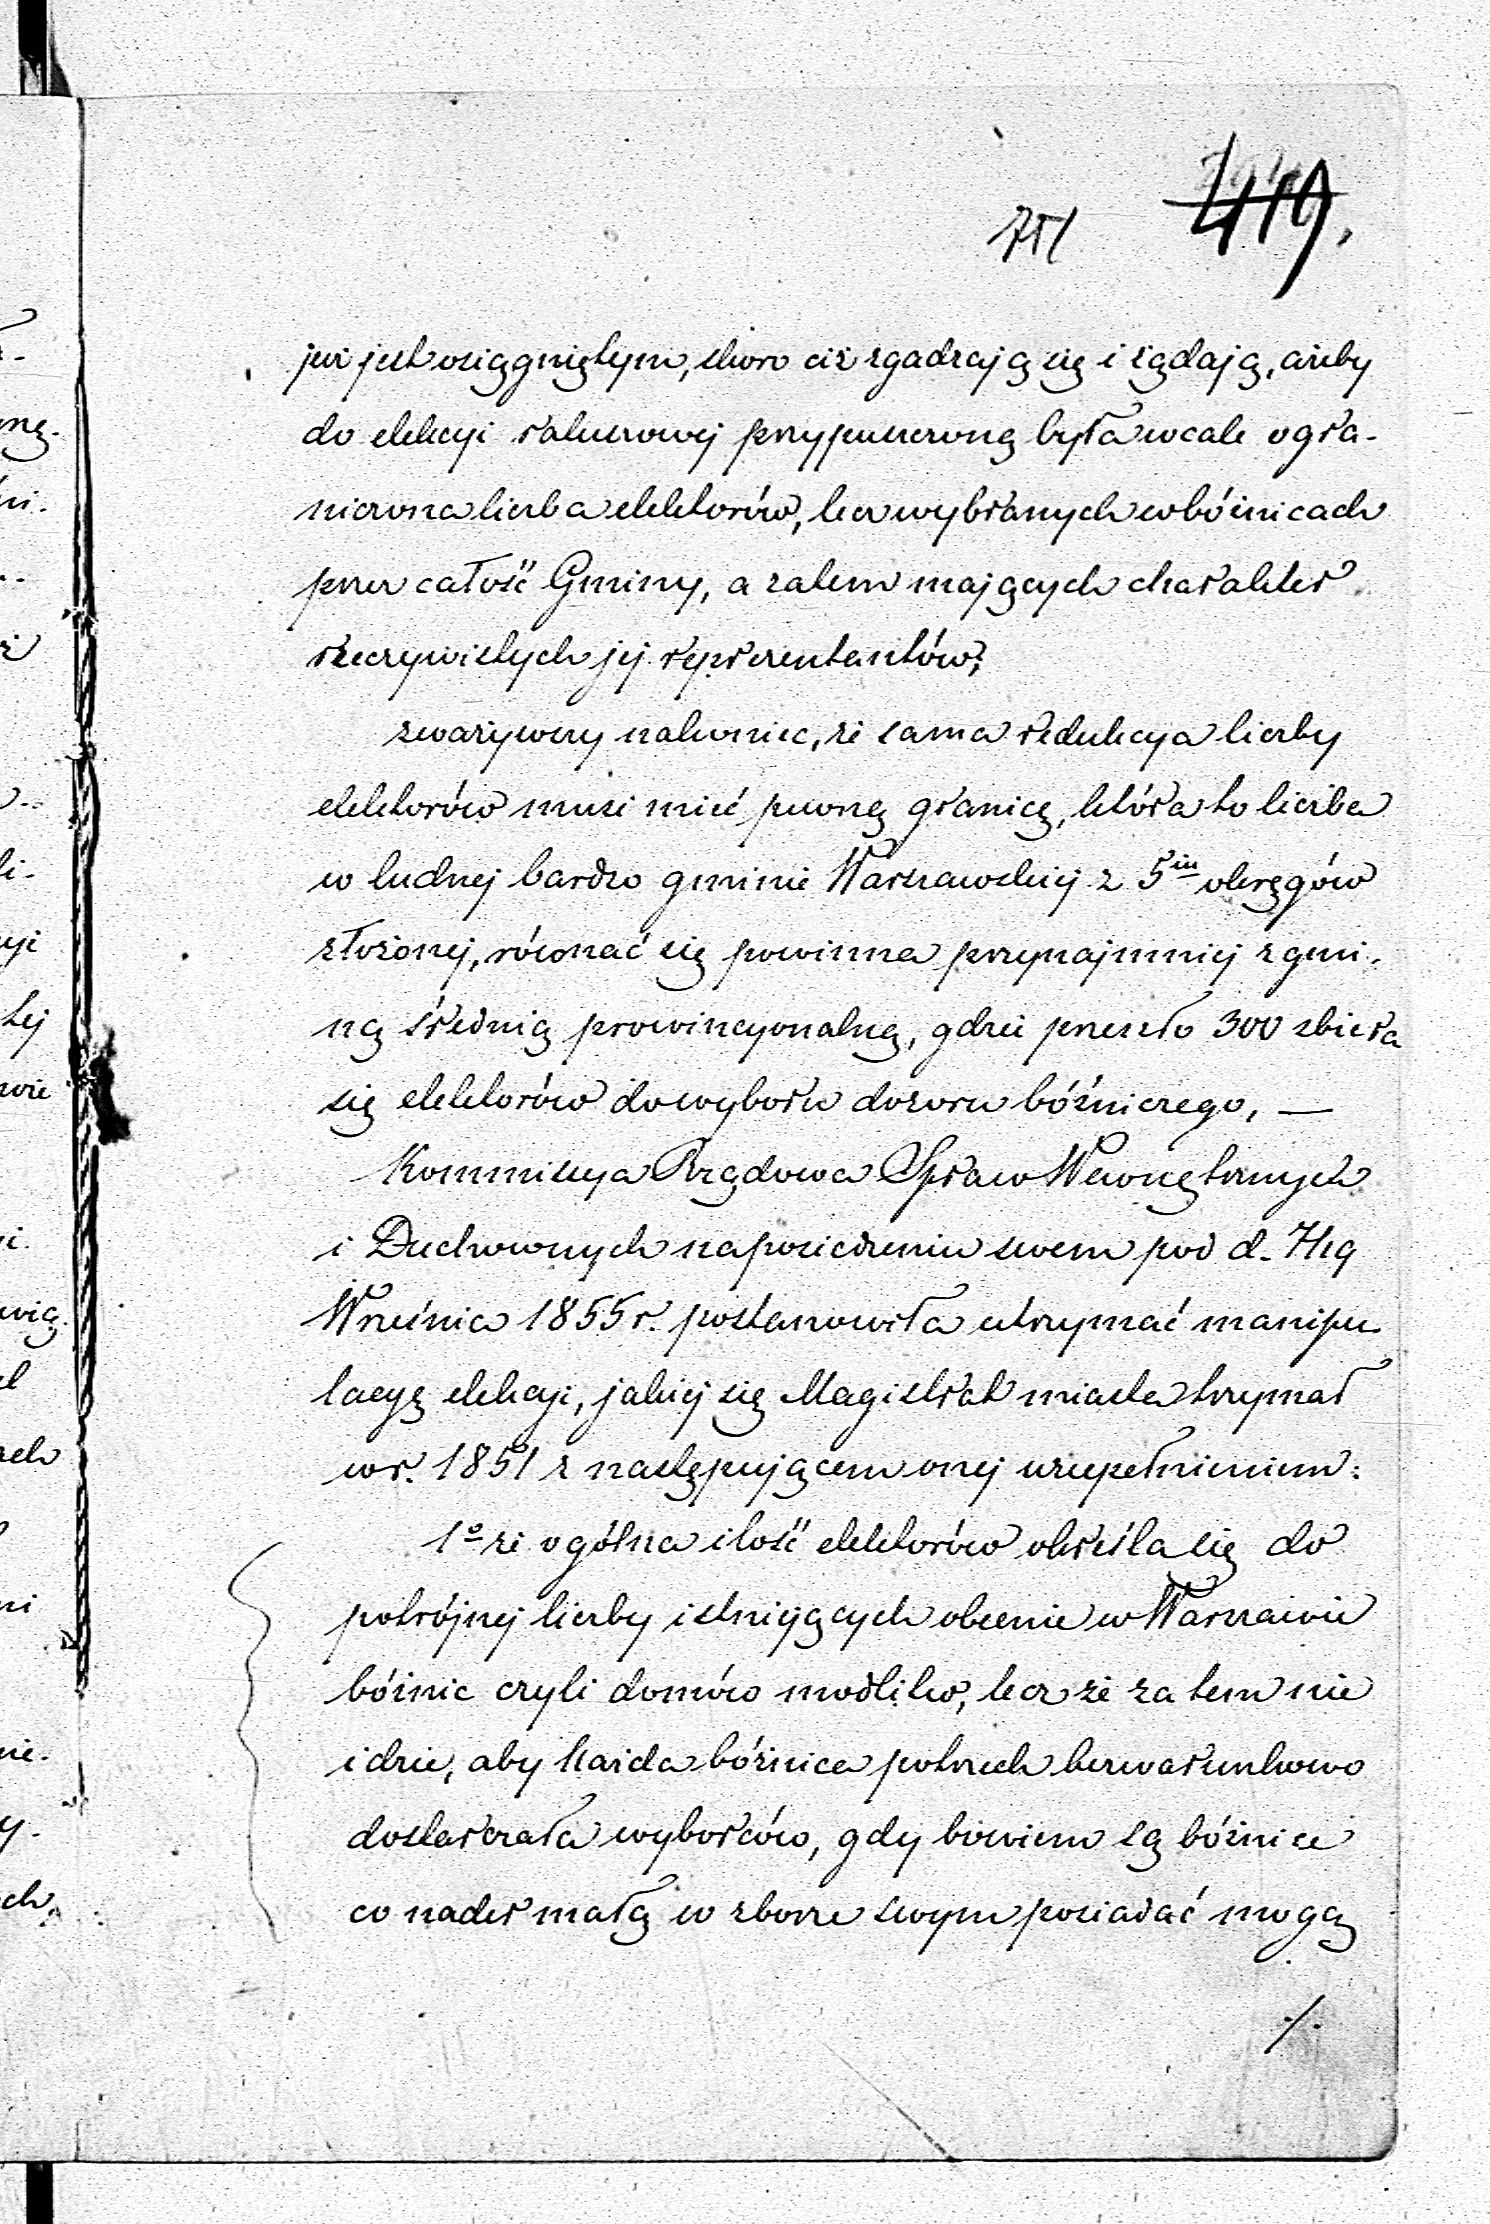 751 419.
już jest osiągniętym, skoro ciż zgadzają się i żądają, ażeby
do elekcyi rabinowej przypuszczoną była wcale ogra-
niczona liczba elektorów, lecz wybranych w bóżnicach
przez całość Gminy, a zatem mających charakter
rzeczywistych jej reprezentantów;
zważywszy nakoniec, że sama redukcya liczby
elektorów musi mieć pewną granicę, która to liczba
w ludnej bardzo gminie Warszawskiej z 5iu okręgów
złożonej, równać się powinna przynajmniej z gmi-
ną średnią prowincyonalną, gdzie przeszło 300 zbiera
się elektorów do wyboru dozoru bóźniczego, —
Kommissya Rządowa Spraw Wewnętrznych
i Duchownych na posiedzeniu swem pod d. 7/19
Września 1855 r. postanowiła utrzymać manipu-
lacyę elekcyi, jakiej się Magistrat miasta trzymał
w r. 1851 z następującem onej uzupełnieniem:
1o że ogólna ilość elektorów określa się do
potrójnej liczby istniejących obecnie w Warszawie
bóżnic czyli domów modlitw, lecz że zatem nie
idzie, aby każda bóżnica po trzech bezwarunkowo
dostarczała wyborców, gdy bowiem są bóżnice
co nader małą w zborze swym posiadać mogą
./.